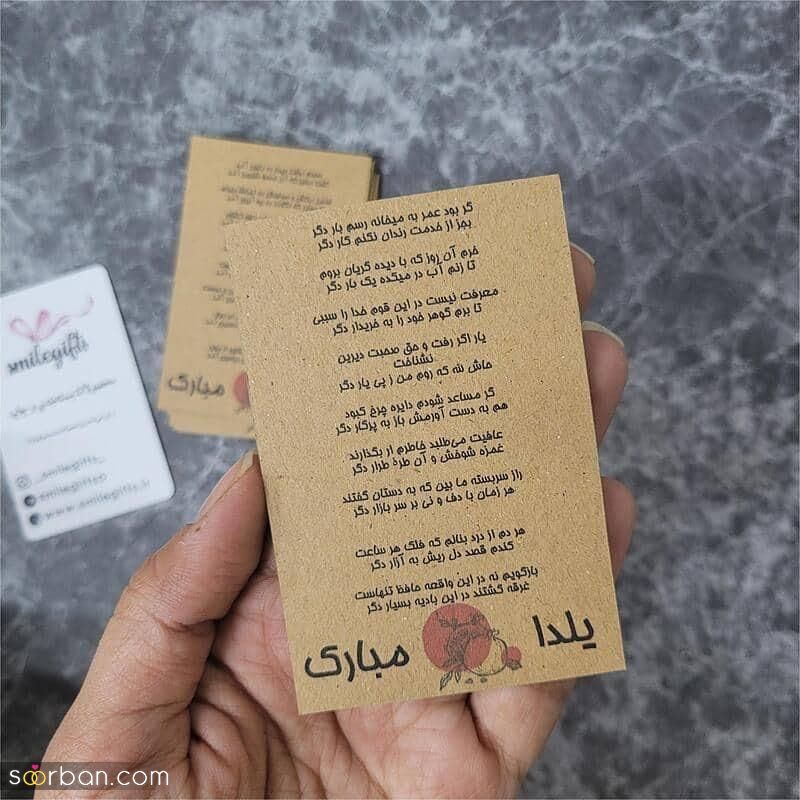 گر بود عمر به میخانه رسم بار دگر
بجز از خدمت رندان نکنم کار دگر
خرم آن روز که با دیده گریان بروم
تا زنم آب در میکده یک بار دگر
معرفت نیست در این قوم خدا را سببی
تا برم گوهر خود را به خریدار دگر
یار اگر رفت و حق صحبت دیرین
نشناخت
حاش لله که روم من ز پی یار دگر
گر مساعد شودم دایره چرخ کبود
هم به دست آورمش باز به پرگار دگر
عافیت می‌طلبد خاطرم ار بگذارند
غمزه شوخش و آن طره طرار دگر
راز سربسته ما بین که به دستان گفتند
هر زمان با دف و نی بر سر بازار دگر
هر دم از درد بنالم که فلک هر ساعت
کندم قصد دل ریش به آزار دگر
بازگویم نه در این واقعه حافظ تنهاست
غرقه گشتند در این بادیه بسیار دگر
یلدا مبارک
مبارک
smilegifts
_smilegifts_
www.smilegifts.ir
soorban.com